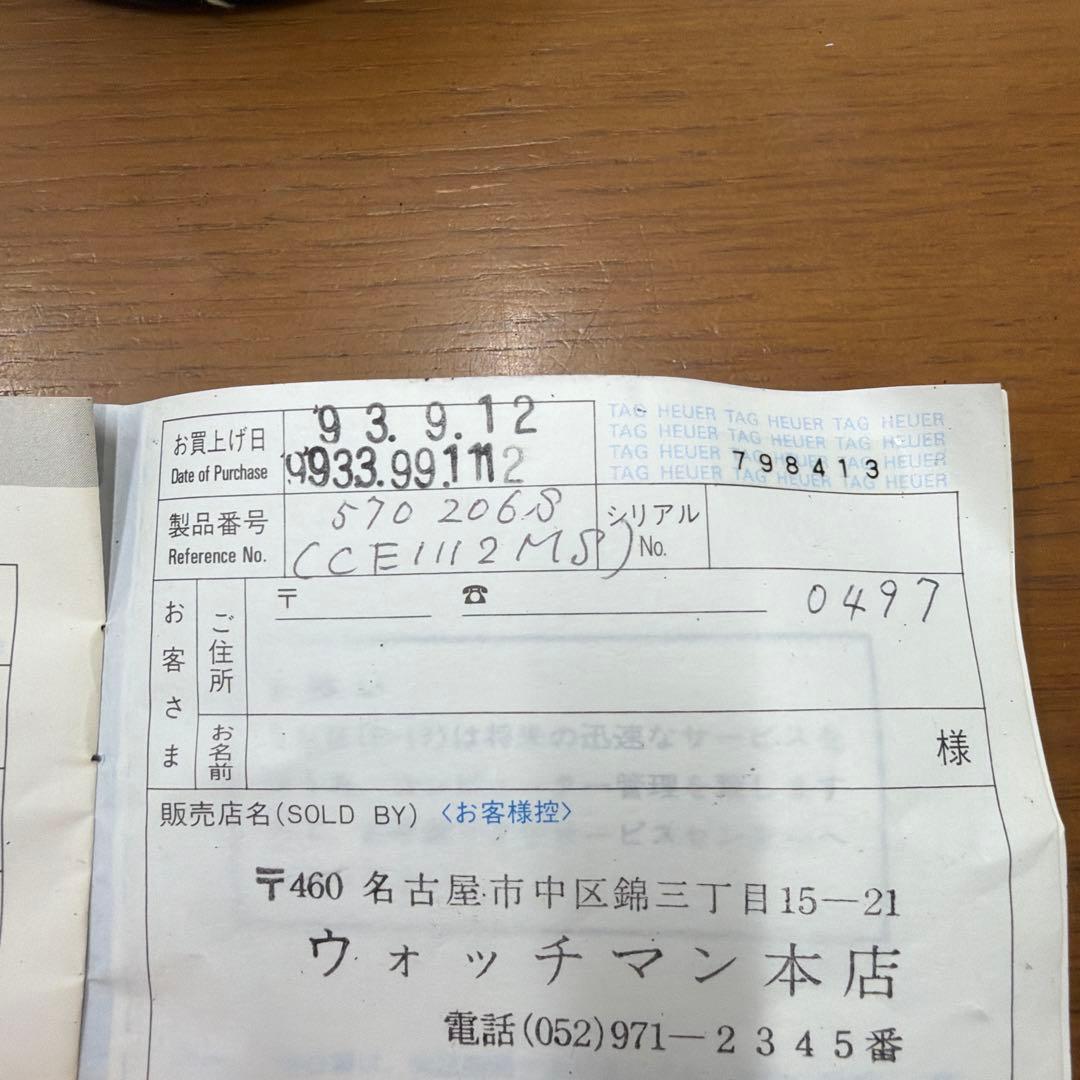 お買上げ日
Date of Purchase
'93.9.12
TAG HEUER TAG HEUER TAG HEUER
TAG HEUER TAG HEUER TAG HEUER
TAG HEUER TAG HEUER TAG HEUER
TAG HEUER TAG HEUER TAG HEUER
798413
製品番号
Reference No.
570 206S
(CE1112MS)
シリアル
No.
お客さま
ご住所
〒
☎
0497
お名前
様
販売店名(SOLD BY) 〈お客様控〉
〒460 名古屋市中区錦三丁目15―21
ウォッチマン本店
電話(052)971―2345番